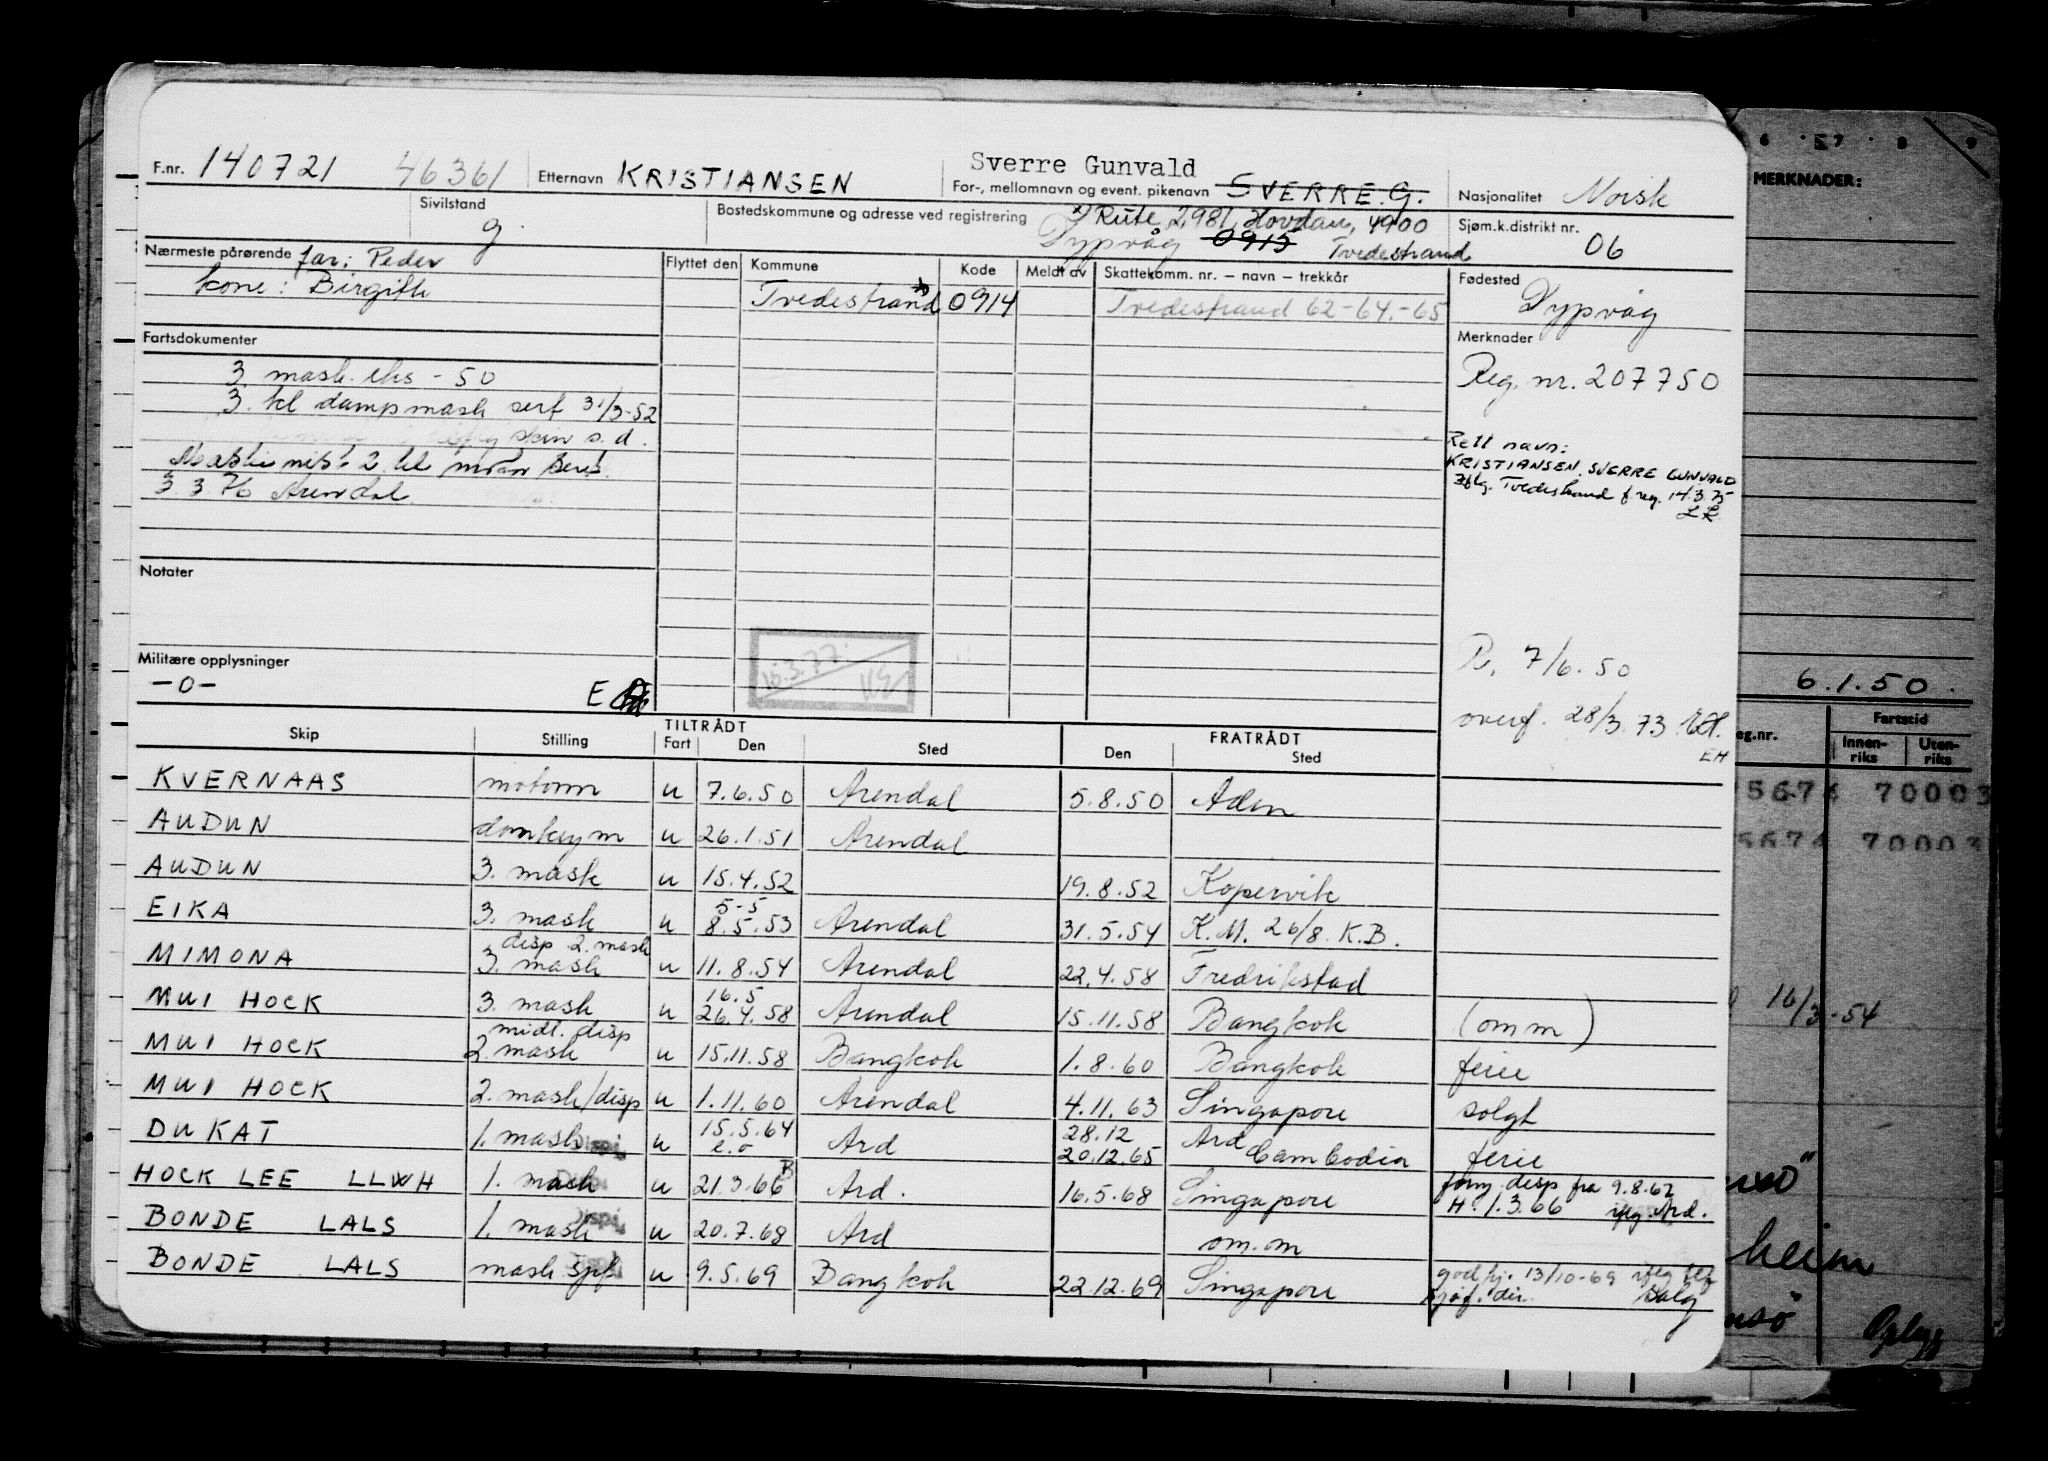 F.nr. 140721 46361 Etternavn KRISTIANSEN Sverre Gunvald
For-, mellomnavn og event. pikenavn SVERRE. G. Nasjonalitet Norsk
Sivilstand g Bostedskommune og adresse ved registrering x) Rute 2981, Hovdan, 4900
Dypvåg 0915 Tvedestrand Sjøm.k.distrikt nr. 06
Nærmeste pårørende far: Peder Flyttet den Kommune Kode Meldt av Skattekomm. nr. – navn – trekkår Fødested
kone: Birgith Tvedestrand x 0914 Tvedestrand 62-64.-65 Dypvåg
Fartsdokumenter Merknader
3 mask. eks - 50 Reg. nr. 207750
3. kl dampmask serf 31/3-52
skin s.d. Rett navn:
Maskinist 2 kl KRISTIANSEN, SVERRE GUNVALD
3.3 76 Arendal Iflg. Tvedestrand f.reg. 14.3.75
LR
Notater
R. 7/6.50
Militære opplysninger 16.3.77
-0- E overf. 28/3.73
EH
Skip Stilling TILTRÅDT FRATRÅDT
Fart Den Sted Den Sted
KVERNAAS motorm u 7.6.50 Arendal 5.8.50 Aden
AUDUN donkeym u 26.1.51 Arendal
AUDUN 3. mask u 15.4.52 19.8.52 Kopervik
EIKA 3. mask u 5-5 8.5.53 Arendal 31.5.54 K.M. 26/8. K.B.
MIMONA disp 2. mask 3. mask u 11.8.54 Arendal 22.4.58 Fredrikstad
MUI HOCK 3. mask u 16.5 26.4.58 Arendal 15.11.58 Bangkok (om m)
MUI HOCK midl. disp 2. mask u 15.11.58 Bangkok 1.8.60 Bangkok ferie
MUI HOCK 2. mask/disp u 1.11.60 Arendal 4.11.63 Singapore solgt
DUKAT 1. mask Disp. u 15.5.64 e.o Ard 28.12 20.12.65 Ard Cambodia ferie
HOCK LEE LLWH 1. mask Disp. u 21.3.66 B Ard. 16.5.68 Singapore forny. disp fra 9.8.67
H. 1.3.66 iflg. Ard.
BONDE LALS 1. mask Disp. u 20.7.68 Ard om.m
BONDE LALS mask sjef u 9.5.69 Bangkok 22.12.69 Singapore godkj. 13/10-69 iflg
Sjøf. dir. Salg
6 7 8 9
MERKNADER:
6.1.50.
eg.nr. Fartstid
Innen-riks Uten-riks
70003
70003
16/3-54
heim